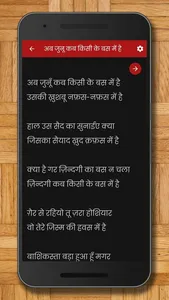 अब जुनूँ कब किसी के बस में है
अब जुनूँ कब किसी के बस में है
उसकी ख़ुशबू नफ़स-नफ़स में है
हाल उस सैद का सुनाईए क्या
जिसका सैयाद ख़ुद क़फ़स में है
क्या है गर ज़िन्दगी का बस न चला
ज़िन्दगी कब किसी के बस में है
ग़ैर से रहियो तू ज़रा होशियार
वो तेरे जिस्म की हवस में है
बाशिकस्ता बड़ा हुआ हूँ मगर